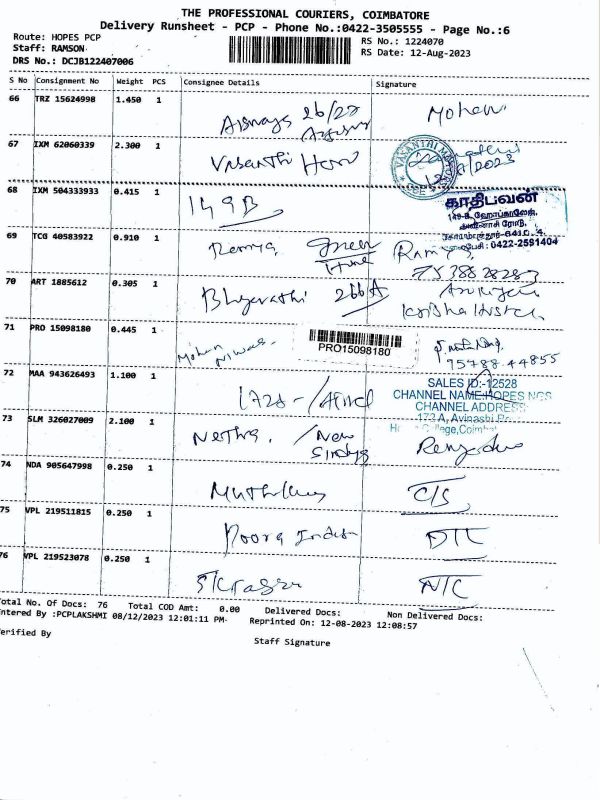 THE PROFESSIONAL COURIERS, COIMBATORE
Delivery Runsheet - PCP - Phone No.:0422-3505555 - Page No.:6
Route: HOPES PCP
Staff: RAMSON
DRS No.: DCJB122407006
RS No.: 1224070
RS Date: 12-Aug-2023
S No Consignment No Weight PCS Consignee Details Signature
66 TRZ 15624998 1.450 1 26/27 Mohan
67 IXM 62060339 2.300 1 Vasanthi
VASANTHI
68 IXM 504333933 0.415 1 149B
காதிபவன்
149-B, ஹோப்காலேஜ்,
அவினாசி ரோடு,
கோயமுத்தூர்-641 0 4.
தொலைபேசி : 0422-2591404
69 TCG 40583922 0.910 1 Remya, Green Home Ramya,
7538828283
70 ART 1885612 0.305 1 266A
71 PRO 15098180 0.445 1 Mohan Niwas
PRO15098180
95788 44855
72 MAA 943626493 1.100 1 1728-/
SALES ID:-12528
CHANNEL NAME:HOPES NGS
CHANNEL ADDRESS:
173 A, Avinashi
College,Coimbat
73 SLM 326027009 2.100 1 Nethra, /New
74 NDA 905647998 0.250 1 C/S
75 VPL 219511815 0.250 1 DTC
76 VPL 219523078 0.250 1 N/C
Total No. Of Docs: 76 Total COD Amt: 0.00 Delivered Docs: Non Delivered Docs:
Entered By :PCPLAKSHMI 08/12/2023 12:01:11 PM Reprinted On: 12-08-2023 12:08:57
Verified By
Staff Signature